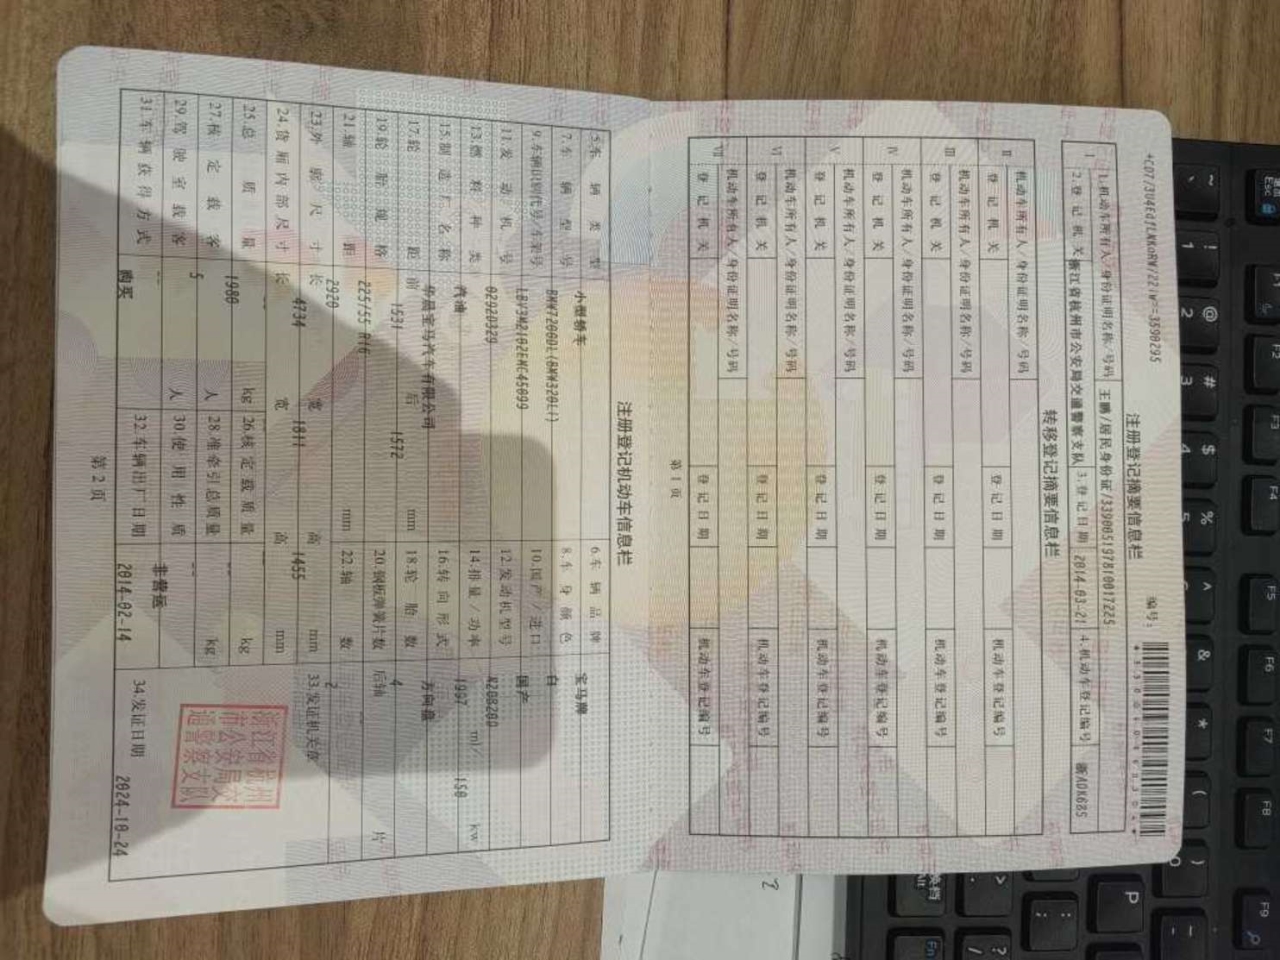 注册登记摘要信息栏
编号:
1.机动车所有人/身份证明名称/号码 王鹏/居民身份证/339005197810017225
2.登记机关 浙江省杭州市公安局交通警察支队 3.登记日期 2014-03-21 4.机动车登记编号 浙A0K685
转移登记摘要信息栏
II 机动车所有人/身份证明名称/号码
登记机关 登记日期 机动车登记编号
III 机动车所有人/身份证明名称/号码
登记机关 登记日期 机动车登记编号
IV 机动车所有人/身份证明名称/号码
登记机关 登记日期 机动车登记编号
V 机动车所有人/身份证明名称/号码
登记机关 登记日期 机动车登记编号
VI 机动车所有人/身份证明名称/号码
登记机关 登记日期 机动车登记编号
VII 机动车所有人/身份证明名称/号码
登记机关 登记日期 机动车登记编号
第1页
注册登记机动车信息栏
5.车辆类型 小型轿车 6.车辆品牌 宝马牌
7.车辆型号 BMW7200DL(BMW320Li) 8.车身颜色 白
9.车辆识别代号/车架号 10.国产/进口 国产
11.发动机号 02020329 12.发动机型号
13.燃料种类 汽油 14.排量/功率 1997 ml/ 150 kw
15.制造厂名称 华晨宝马汽车有限公司 16.转向形式 方向盘
17.轮距 前 1531 后 1572 mm 18.轮胎数 4
19.轮胎规格 225/55 R16 20.钢板弹簧片数 后轴 片
21.轴距 2920 mm 22.轴数 2
23.外廓尺寸 长 4734 宽 1811 高 1455 mm 33.发证机关章
24.货厢内部尺寸 长 宽 高 mm
25.总质量 1980 kg 26.核定载质量 kg
27.核定载客 5 人 28.准牵引总质量 kg
29.驾驶室载客 人 30.使用性质 非营运
浙江省杭州市公安局交通警察支队
31.车辆获得方式 购买 32.车辆出厂日期 2014-02-14 34.发证日期 2024-10-24
第2页